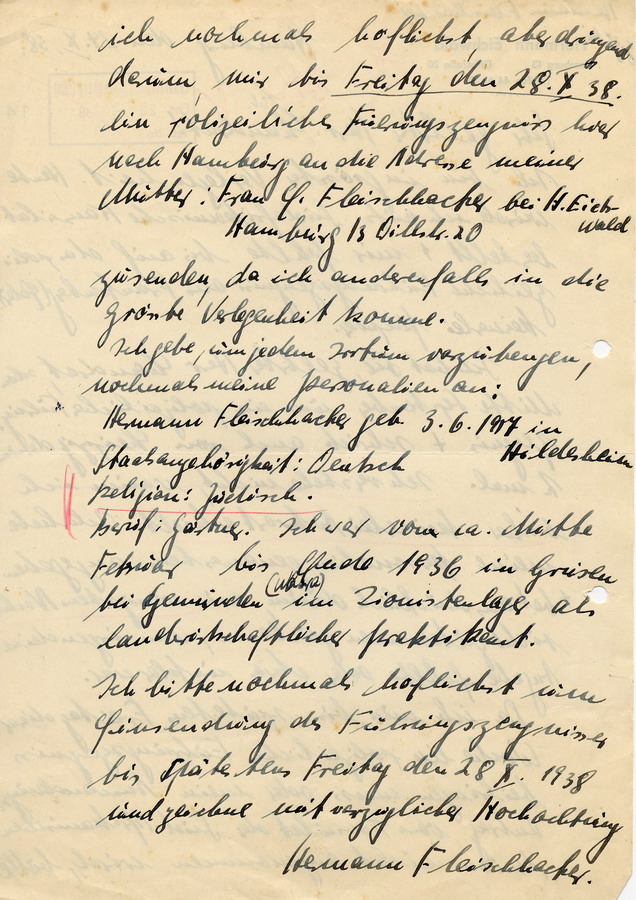 ich nochmals höflichst, aber dringend
darum, mir bis Freitag den 28. X 38.
ein polizeiliches Führungszeugniss hier
nach Hamburg an die Adresse meiner
Mutter: Frau G. Fleischhacker bei H. Eich-
wald
Hamburg 13 Dillstr. 20
zusenden, da ich anderenfalls in die
grösste Verlegenheit komme.
Ich gebe, um jedem Irrtum vorzubeugen,
nochmals meine Personalien an:
Hermann Fleischhacker geb. 3. 6. 1917 in
Hildesheim
Staatsangehörigkeit: Deutsch
Religion: Jüdisch.
Beruf: Gärtner. Ich war vom ca. Mitte
Februar bis Ende 1936 in Grüsen
bei Gemünden (Wohra) im Zionistenlager als
landwirtschaftlicher Praktikant.
Ich bitte nochmals höflichst um
Einsendung des Führungszeugnisses
bis spätestens Freitag den 28 X. 1938
und zeichne mit vorzüglicher Hochachtung
Hermann Fleischhacker.